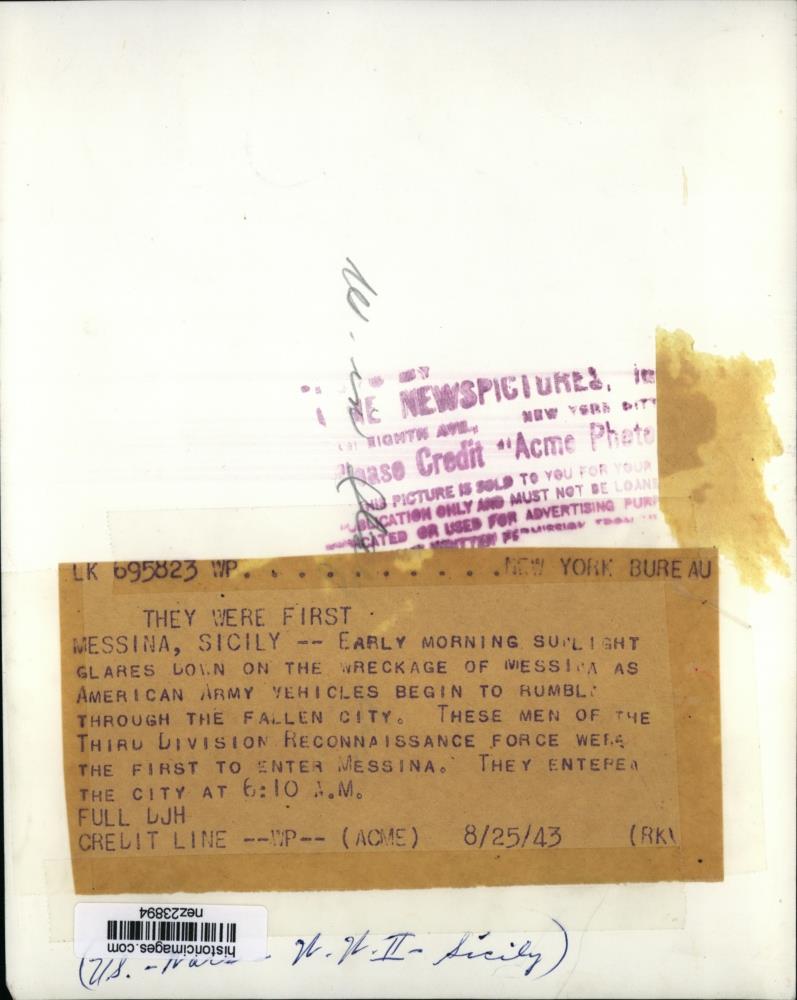 NEWSPICTURES,
EIGHTH AVE., NEW YORK CITY
Please Credit "Acme Photo
THIS PICTURE IS SOLD TO YOU FOR YOUR
PUBLICATION ONLY AND MUST NOT BE LOANED
OR USED FOR ADVERTISING
WRITTEN PERMISSION FROM
LK 695823 WP. . . . . . . . . . .NEW YORK BUREAU
THEY WERE FIRST
MESSINA, SICILY -- EARLY MORNING SUNLIGHT
GLARES DOWN ON THE WRECKAGE OF MESSINA AS
AMERICAN ARMY VEHICLES BEGIN TO RUMBLE
THROUGH THE FALLEN CITY. THESE MEN OF THE
THIRD DIVISION RECONNAISSANCE FORCE WERE
THE FIRST TO ENTER MESSINA. THEY ENTERED
THE CITY AT 6:10 A.M.
FULL DJH
CREDIT LINE --WP-- (ACME) 8/25/43 (RK)
historicimages.com
nez23894
(U.S. - W.W. II - Sicily)